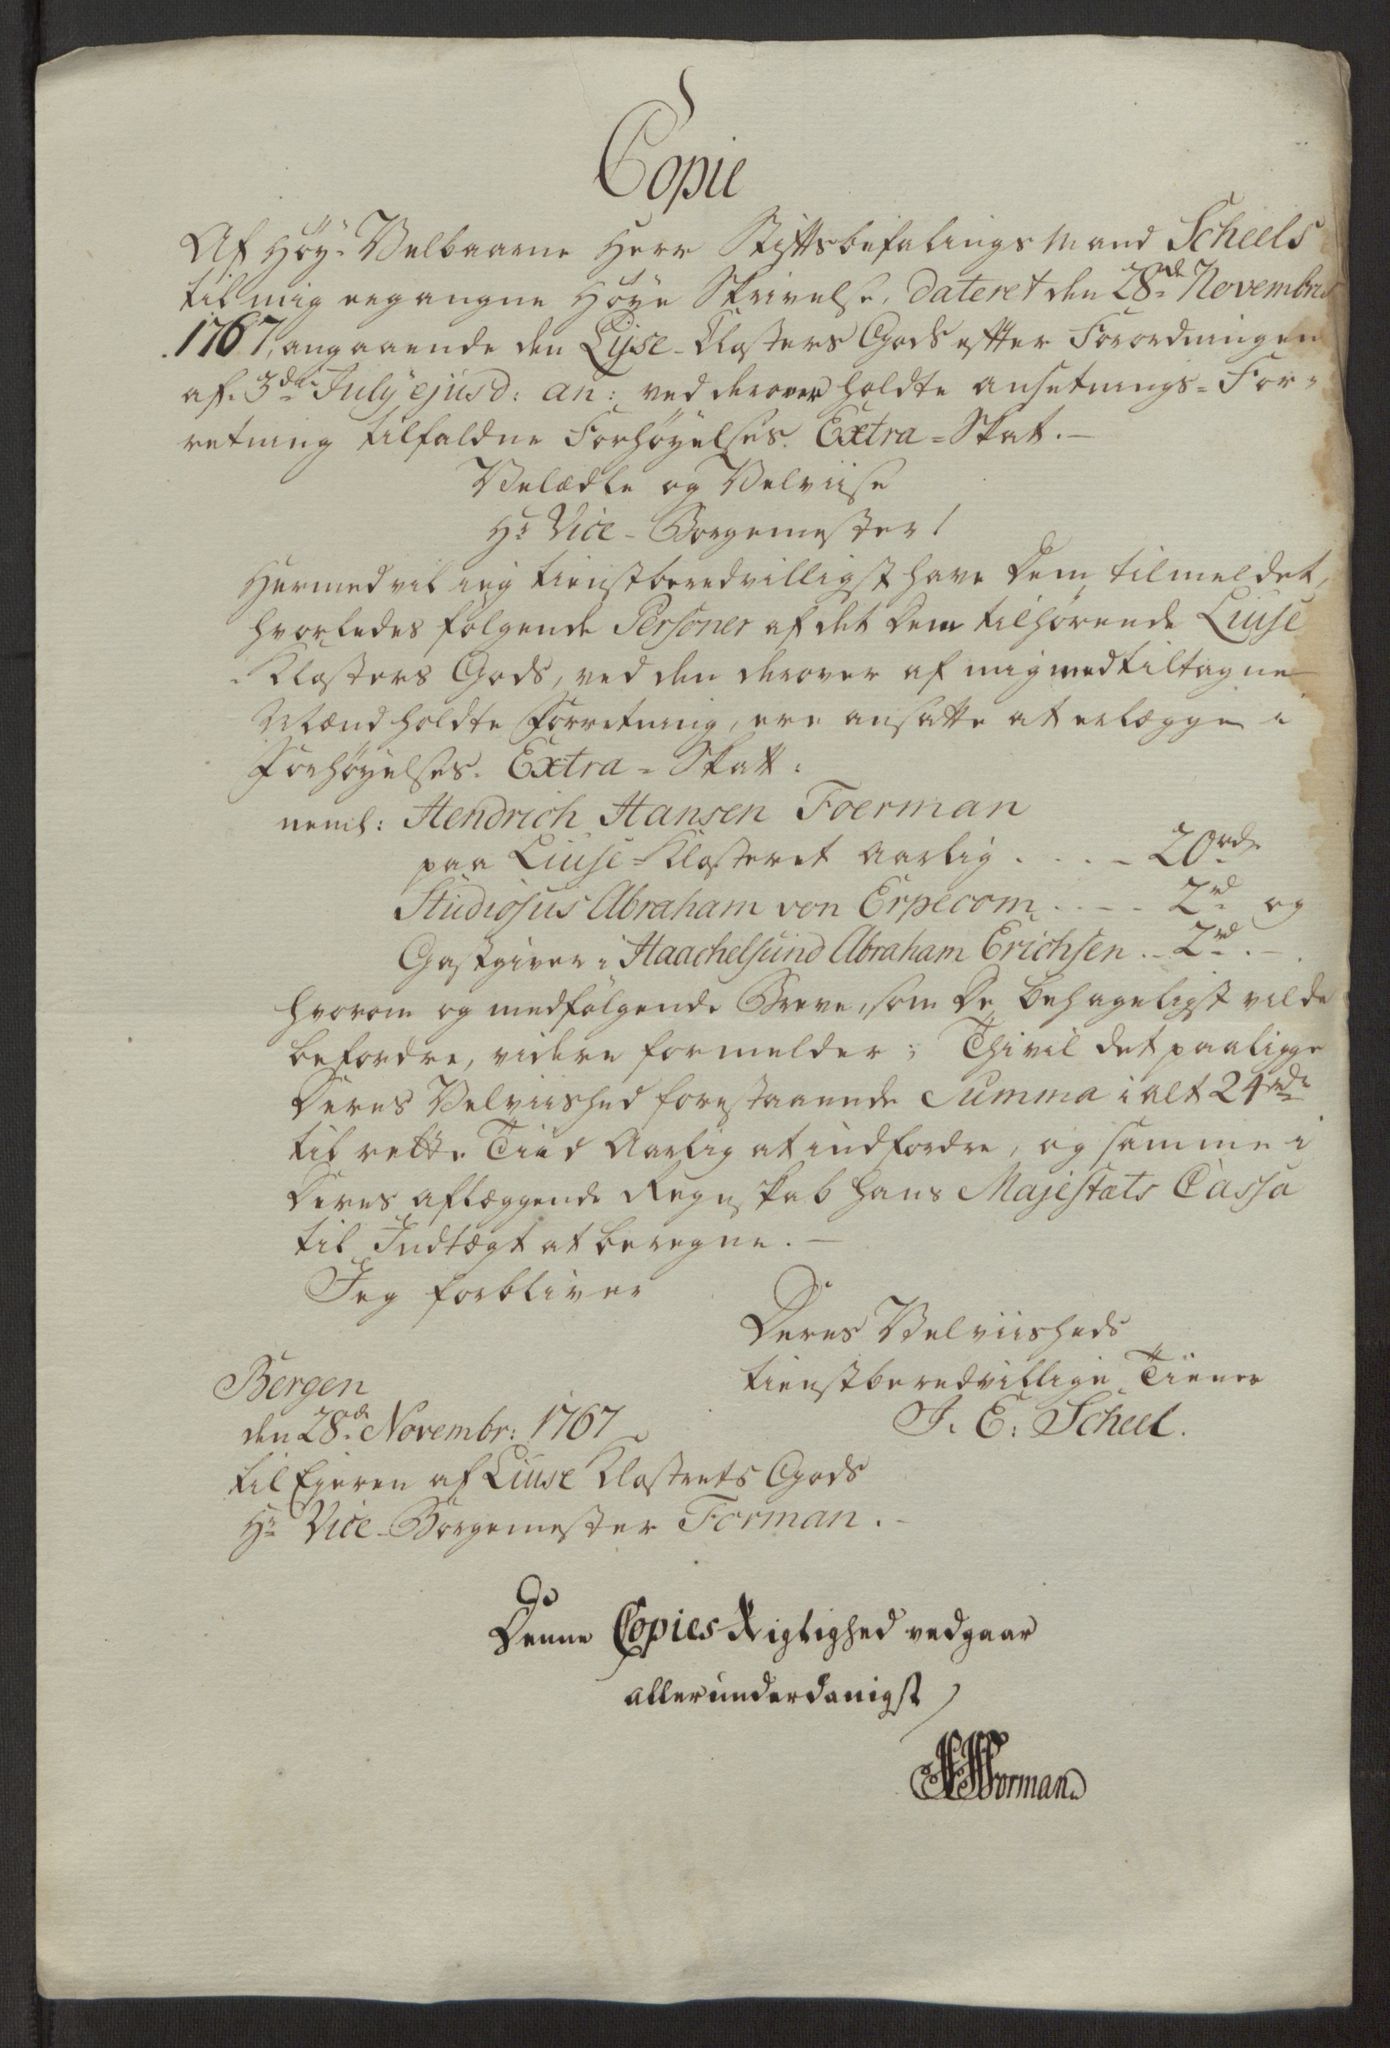 Copie
Af Høy-Velbaarne Herr Stiftsbefalings Mand Scheels
til mig ergangne Høye Skrivelse, dateret den 28de Novembris
1767, angaaende den Lyse-Klosters Gods efter Forordningen
af 3die July ejusd: an: ved derover holdte ansetnings-For-
retning tilfaldne Forhøyelses Extra-Skat.-
Velædle og Velviise
Hr Vice-Borgemester!
Hermed vil ieg tienstberedvilligst have Dem tilmeldet,
hvorledes følgende Personer af det Dem tilhørende Liuse
Klosters Gods, ved den derover af mig med tiltagne
Mænd holdte Forretning, ere ansatte at erlægge i
Forhøyelses Extra-Skatt:
neml: Hendrich Hansen Foerman
paa Liuse-Klosteret Aarlig .... 20 rdr
Studiosus Abraham von Erpecom .... 2 rd og
Gastgiver i Haachelsund Abraham Erichsen .. 2 rd .-
hvorom og medfølgende Breve, som De behageligst vilde
befordre, videre formelder; Thi vil det paaligge
Deres Velviished forestaaende Summa i alt 24 rdr
til rette Tiid Aarlig at indfordre, og samme i
Deres aflæggende Regnskab Hans Majestæts Cassa
til Indtægt at beregne.-
Jeg forbliver
Deres Velviisheds
tienstberedvillige Tiener
J. E. Scheel.
Bergen
den 28de Novembr: 1767
til Eyeren af Liuse Klostrets Gods
Hr Vice-Borgemester Forman.-
Denne Copies Rigtighed vedgaar
allerunderdanigst
HHForman